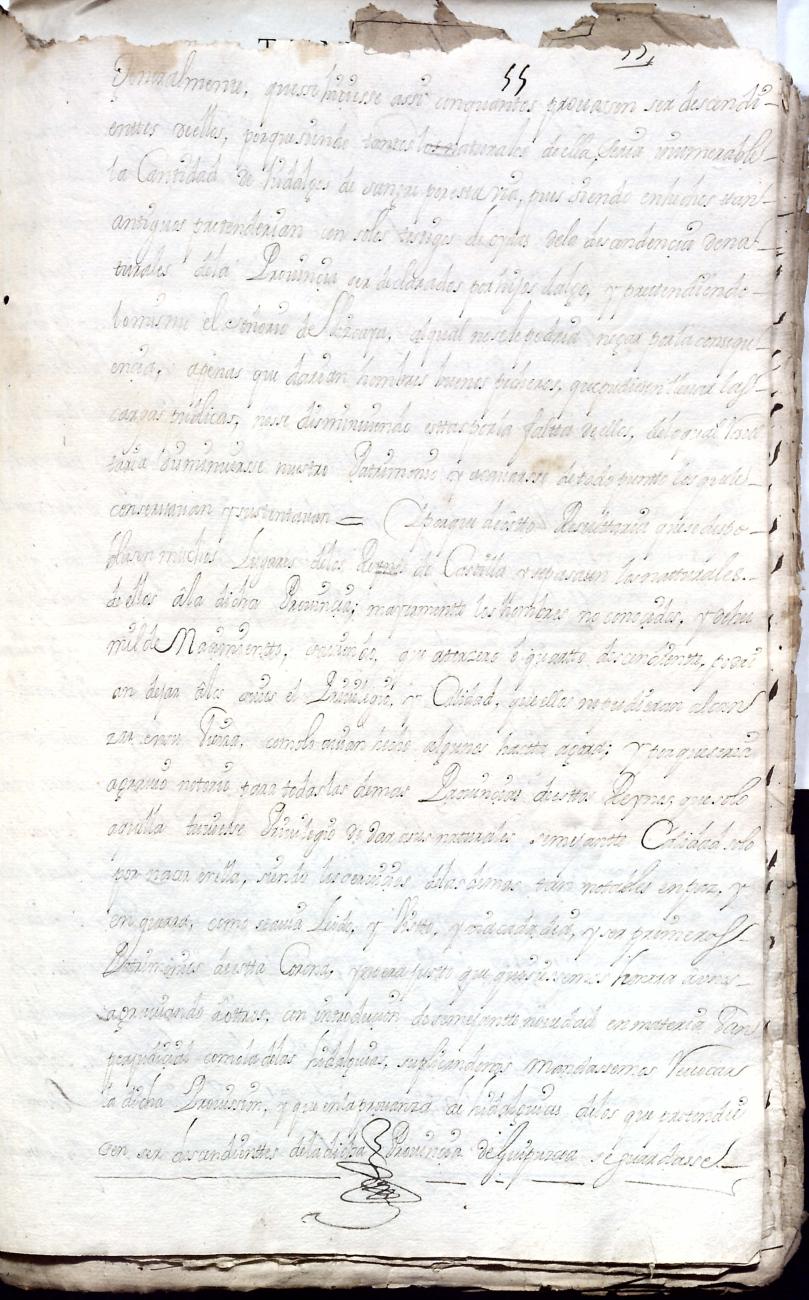 55
Generalmente, que se hiciesse assi en quantos provassen ser descendi-
enttes de ellos, porque siendo tantos los naturales de ella, seria inumerable
la Cantidad de hidalgos de sangre por esta via, pues siendo en hechos tan
antiguos pretenderian con solos testigos de oydas dela descendencia de na-
turales de la Provincia ser declarados por hijos dalgo, y pretendiendo
lo mismo el señorio de Vizcaya, al qual no se le podria negar por la consequ-
encia, apenas que darian hombres buenos pecheros, que pudiesen llevar las
cargas publicas,
diminuirse nuestro Patrimonio y acavarsse de todo punto los que le
conservavan y sustentavan = Y porque de estto Resulttaria que se despo-
blasen muchos Lugares de los Reynos de Castilla y se pasasen los natturales
de ellos ala dicha Provincia; mayormente los hombres no conocidos, y de hu
milde Nacimientto, que a terzero o quartto descendiente, podri
an dejar a los suyos el Privilegio, y Calidad, que ellos no pudieran alcan
zar en su Tierra, como lo avian hecho algunos hastta agora; y porque seria
agravio notorio para todas las demas Provincias de esttos Reynos, que solo
aquella tuviesse Privilegio de dar a sus naturales semejantte Calidad solo
por nacer en ella, siendo los servicios de las demas tan notables en paz, y
en guerra, como se avia Leido, y Visto, y en cada dia, y ser primeros
Patrimonios de estta Corona, y no era justo que quisiessemos honrar a unos
agraviando a ottros, con introducion de semejantte novedad en materia Tan
perjudicial como la de las hidalguias, suplicandonos Mandassemos Revocar
la dicha Provission, y que en la provanza de hidalguias de los que pretendie
sen ser descendienttes de la dicha Provincia de Guipuzcoa se guardasse